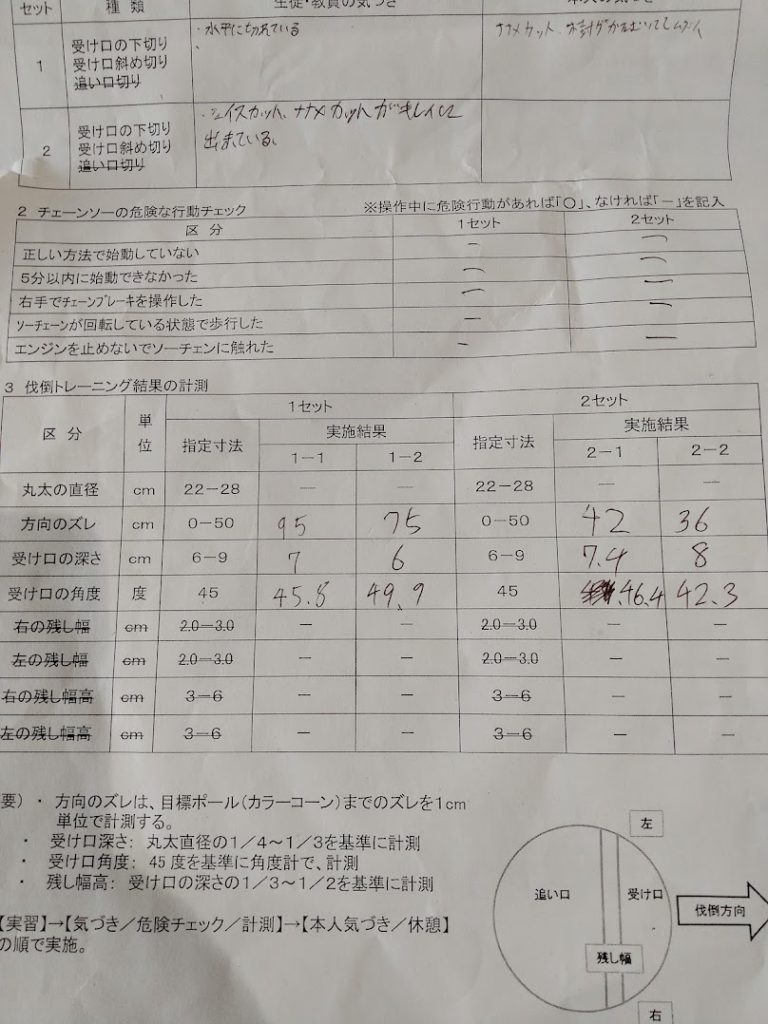 セット 種 類 生徒・教員の気づき
1 受け口の下切り 受け口斜め切り 追い口切り ・水平に切れている ナナメカット
2 受け口の下切り 受け口斜め切り 追い口切り ナナメカットがキレイに
出来ている。
2 チェーンソーの危険な行動チェック ※操作中に危険行動があれば「〇」、なければ「－」を記入
区 分 1セット 2セット
正しい方法で始動していない － －
5分以内に始動できなかった － －
右手でチェーンブレーキを操作した － －
ソーチェーンが回転している状態で歩行した － －
エンジンを止めないでソーチェンに触れた － －
3 伐倒トレーニング結果の計測
区 分 単位 1セット 2セット
指定寸法 実施結果 指定寸法 実施結果
1－1 1－2 2－1 2－2
丸太の直径 cm 22－28 － － 22－28 － －
方向のズレ cm 0－50 95 75 0－50 42 36
受け口の深さ cm 6－9 7 6 6－9 7.4 8
受け口の角度 度 45 45.8 49.9 45 46.4 42.3
右の残し幅 cm 2.0－3.0 － － 2.0－3.0 － －
左の残し幅 cm 2.0－3.0 － － 2.0－3.0 － －
右の残し幅高 cm 3－6 － － 3－6 － －
左の残し幅高 cm 3－6 － － 3－6 － －
要）・ 方向のズレは、目標ポール（カラーコーン）までのズレを1cm
単位で計測する。
・ 受け口深さ： 丸太直径の1／4～1／3を基準に計測
・ 受け口角度： 45度を基準に角度計で、計測
・ 残し幅高： 受け口の深さの1／3～1／2を基準に計測
【実習】→【気づき／危険チェック／計測】→【本人気づき／休憩】
の順で実施。
左
追い口 受け口 伐倒方向
残し幅
右